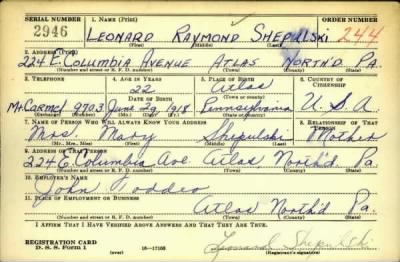 SERIAL NUMBER 1. NAME (Print) ORDER NUMBER
2946 LEONARD RAYMOND SHEPULSKI 244
(First) (Middle) (Last)
2. ADDRESS (Print)
224 E. COLUMBIA AVENUE ATLAS NORTH'D. PA.
(Number and street or R. F. D. number) (Town) (County) (State)
3. TELEPHONE 4. AGE IN YEARS 5. PLACE OF BIRTH 6. COUNTRY OF CITIZENSHIP
22 Atlas
DATE OF BIRTH (Town or county)
Mt. Carmel 9703 June 29, 1918 Pennsylvania U.S.A.
(Exchange) (Number) (Mo.) (Day) (Yr.) (State or country)
7. NAME OF PERSON WHO WILL ALWAYS KNOW YOUR ADDRESS 8. RELATIONSHIP OF THAT PERSON
Mrs. Mary Shepulski Mother
(Mr., Mrs., Miss) (First) (Middle) (Last)
9. ADDRESS OF THAT PERSON
224 E. Columbia Ave Atlas North'd Pa
(Number and street or R. F. D. number) (Town) (County) (State)
10. EMPLOYER'S NAME
John
11. PLACE OF EMPLOYMENT OR BUSINESS
Atlas North'd Pa.
(Number and street or R. F. D. number) (Town) (County) (State)
I AFFIRM THAT I HAVE VERIFIED ABOVE ANSWERS AND THAT THEY ARE TRUE.
REGISTRATION CARD
D. S. S. Form 1 (over) 16-17105 Leonard Shepulski
(Registrant's signature)